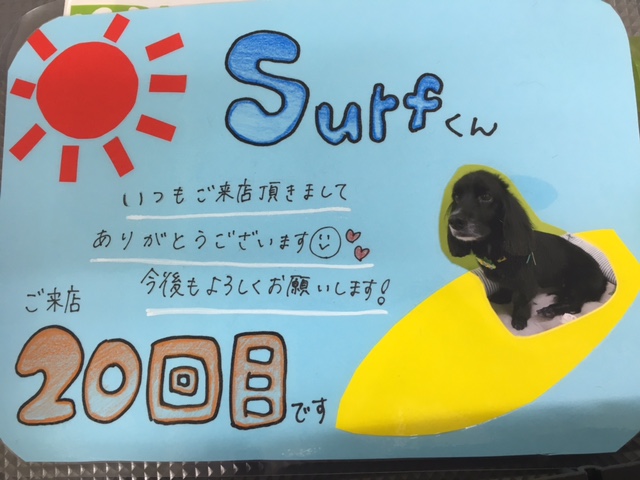 Surfくん
いつもご来店頂きまして
ありがとうございます
今後もよろしくお願いします!
ご来店
20回目です